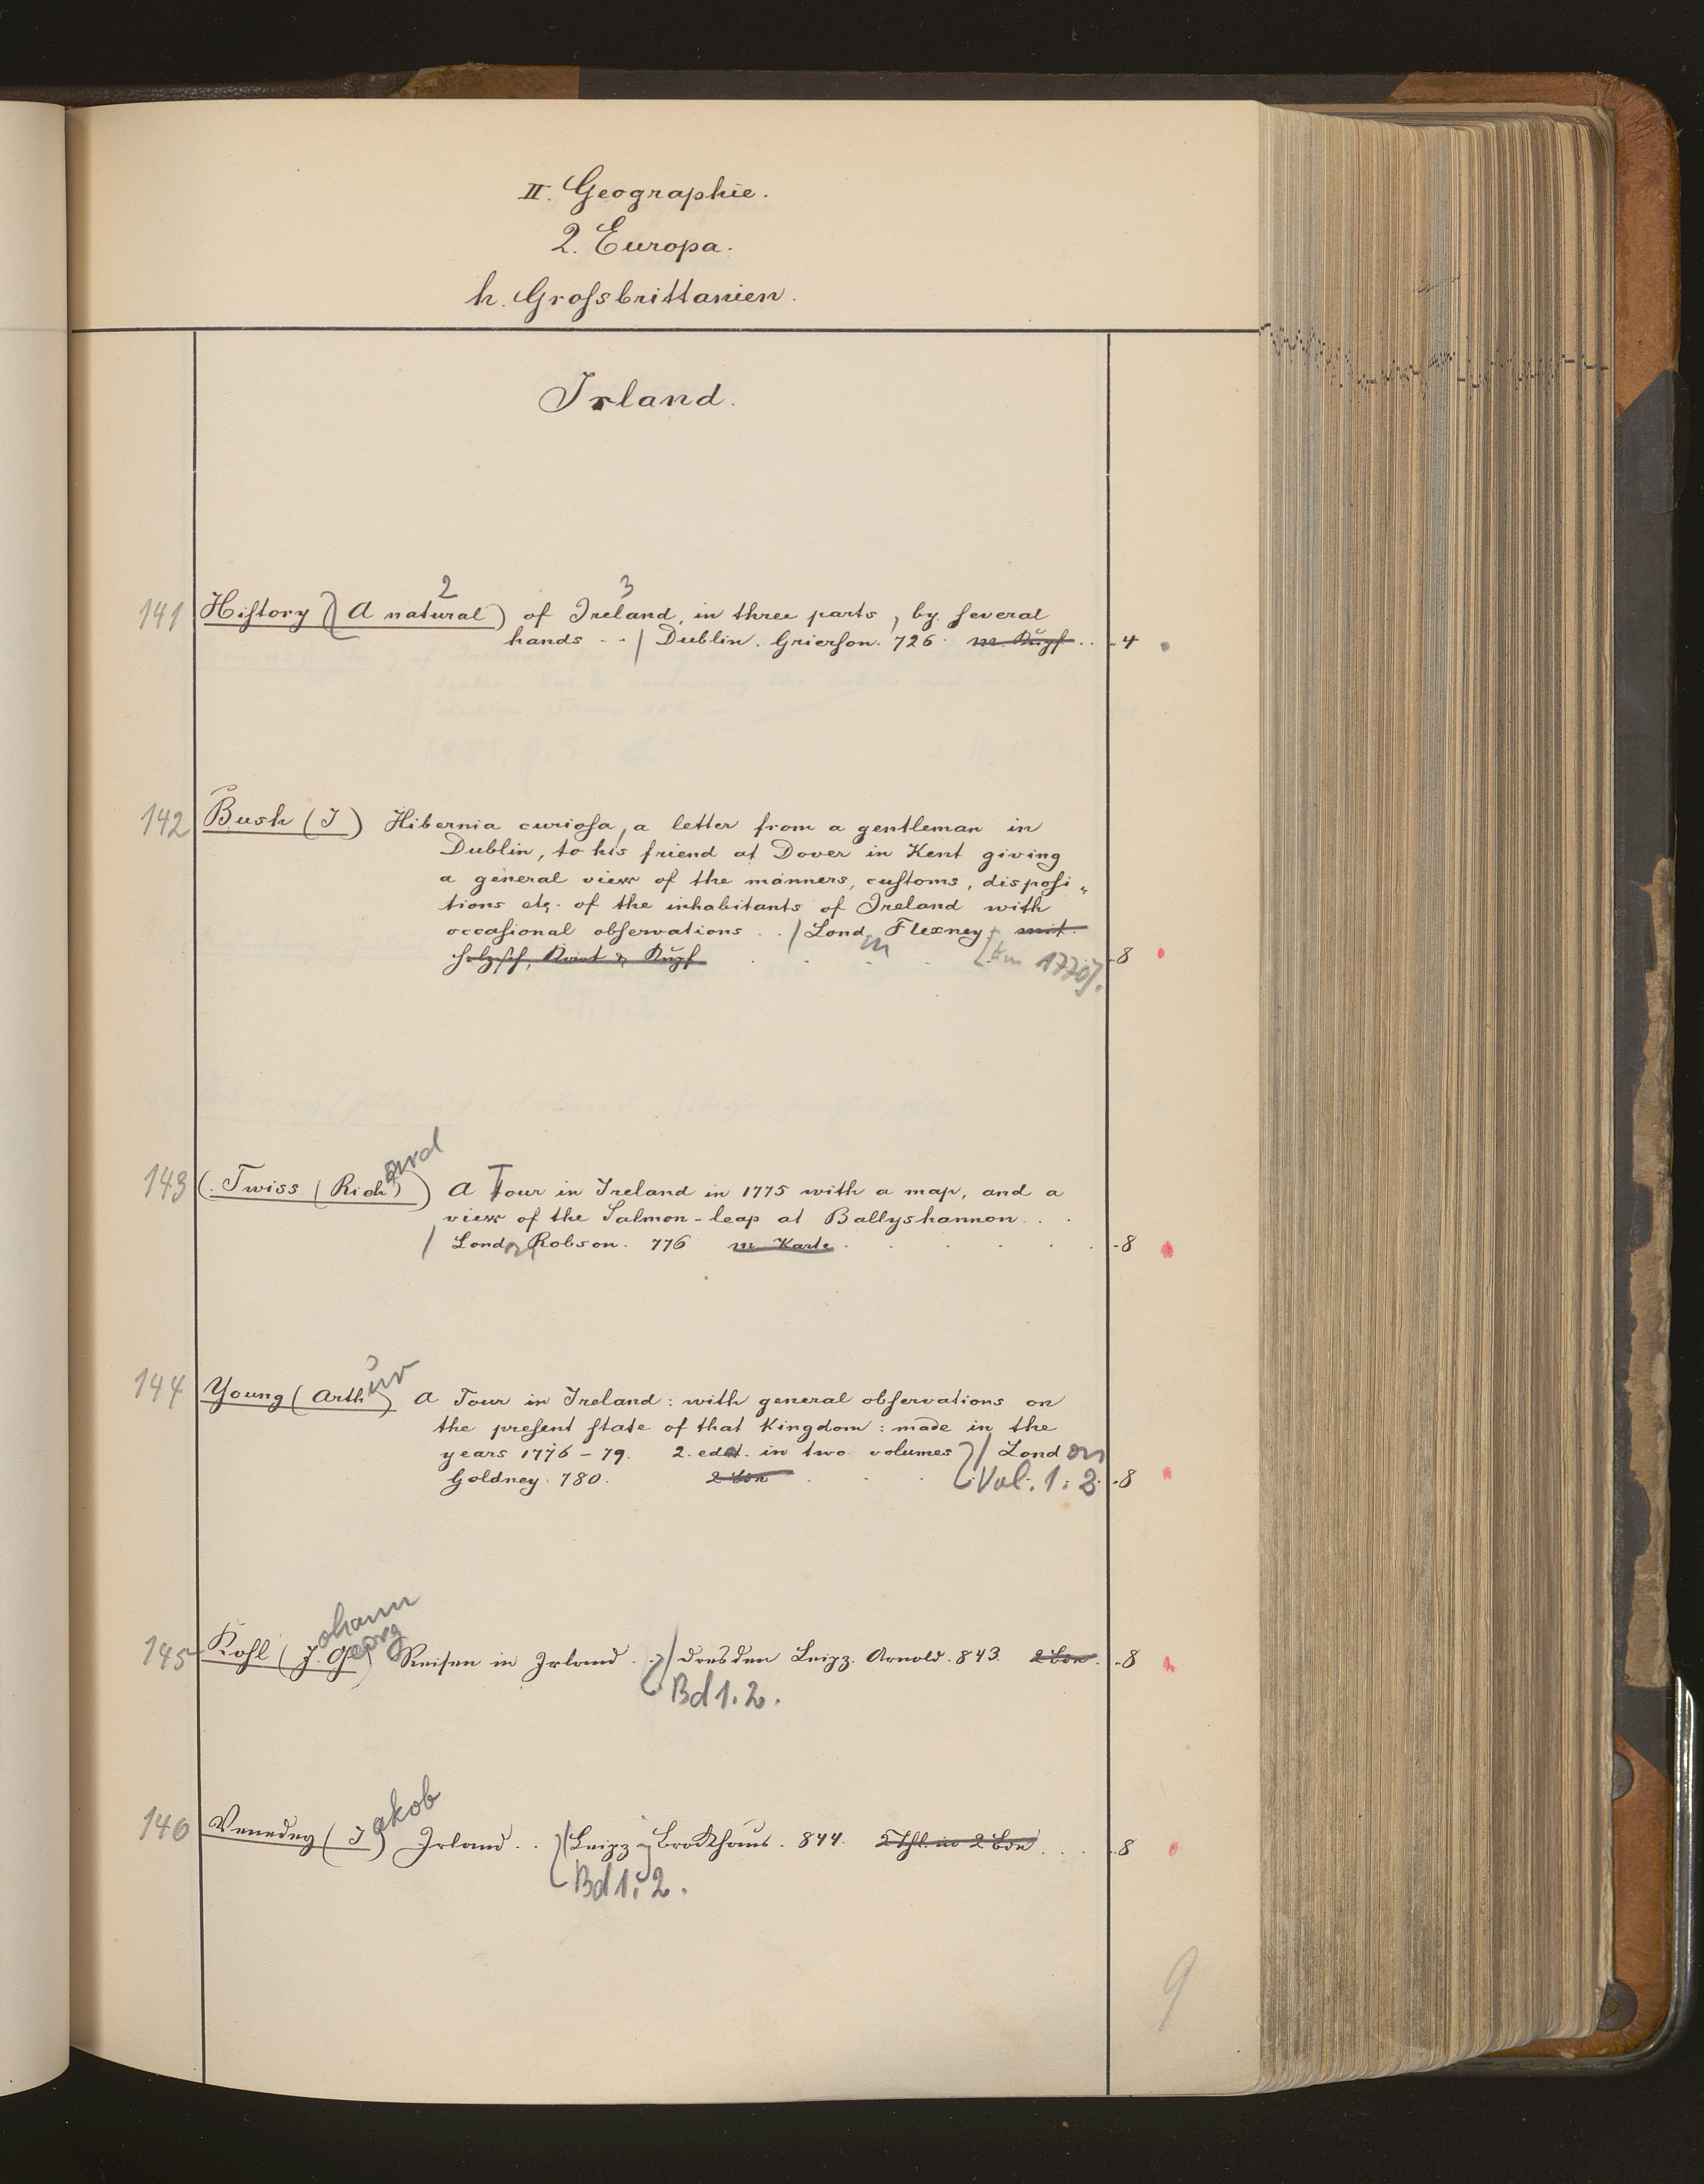 II. Geographie.
2. Europa.
h. Großbrittanien.
Irland.
2 3
141 Hiſtory (A natural) of Ireland, in three parts, by ſeveral
hands .. / Dublin. Grierſon. 726. m. Kupf .. -4
142 Bush (J) Hibernia curioſa, a letter from a gentleman in
Dublin, to his friend at Dover in Kent giving
a general view of the manners, cuſtoms, dispoſi„
tions etc. of the inhabitants of Ireland with
occaſional obſervations .. / Lond Flexney mit
Kupf 1770]. -8
143 (Twiss (Richard)) A Tour in Ireland in 1775 with a map, and a
view of the Salmon-leap at Ballyshannon . .
/ London Robson. 776 m Karte -8
144 Young (Arthur) A Tour in Ireland: with general obſervations on
the preſent ſtate of that Kingdom: made in the
years 1776–79. 2. ed. in two volumes / London
Goldney. 780. 2 Bde Vol. 1. 2. -8
145 Kohl (Johann Georg) Reiſen in Irland . / Dresden Leipz. Arnold. 843. 2 Bde. -8
Bd 1. 2.
146 Venedey (Jakob) Irland . . / Leipzig Brockhaus. 844. 2 Thl. in 2 Bde . . . -8
Bd 1. 2.
9